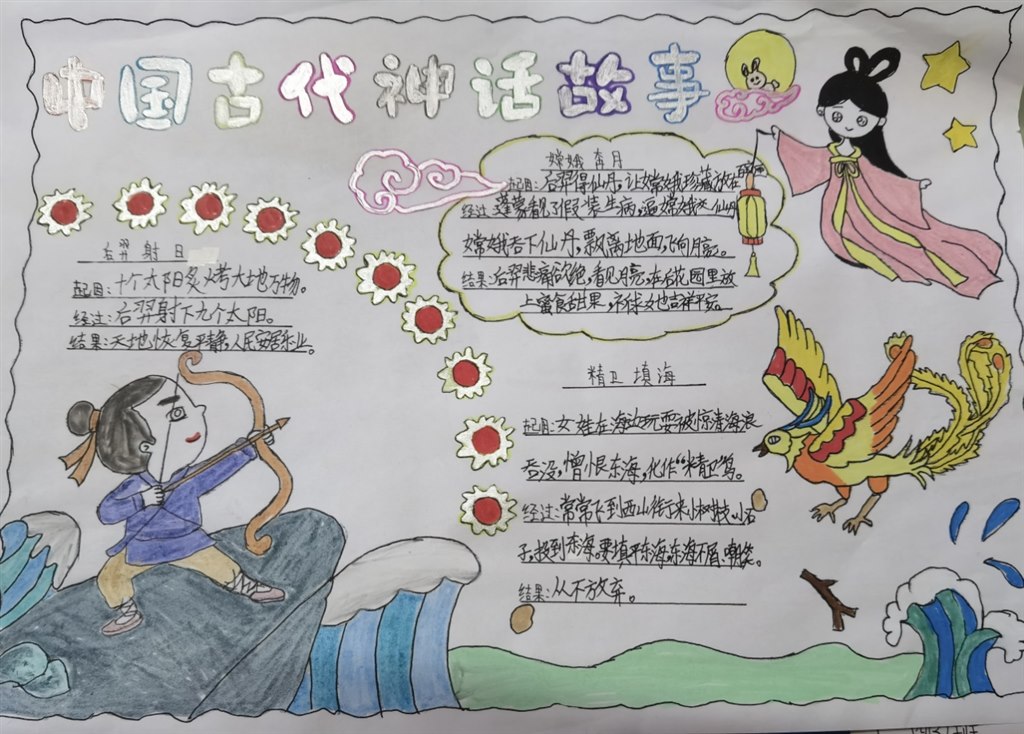 中国古代神话故事
后羿射日
起因:十个太阳炙烤大地万物。
经过:后羿射下九个太阳。
结果:天地恢复平静,人民安居乐业。
嫦娥奔月
起因:后羿得仙丹,让嫦娥珍藏放在
经过:蓬蒙看见了假装生病,逼嫦娥交仙丹
嫦娥吞下仙丹,飘离地面,飞向月亮。
结果:后羿悲痛欲绝,看见月亮,在后花园里放
上蜜食甜果,祈求她吉祥平安
精卫填海
起因:女娃在海边玩耍被惊涛海浪
吞没,憎恨东海,化作“精卫”鸟。
经过:常常飞到西山衔来小树枝、小石
子,投到东海。要填平东海,东海不屑、嘲笑。
结果:从不放弃。